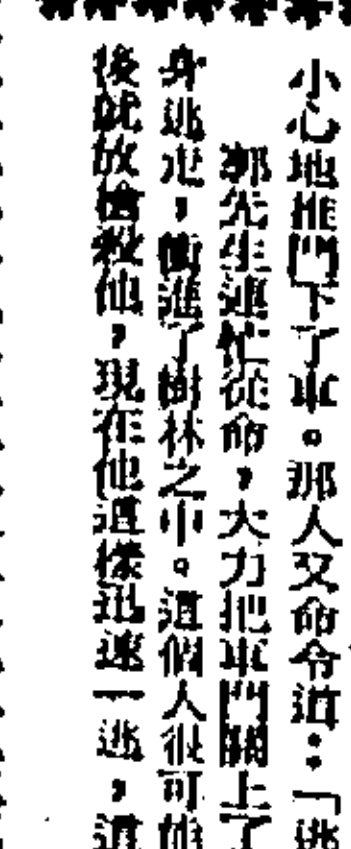 小心地推門下了車。那人又命令道：「逃
郭先生連忙從命，大力把車門關上了
身逃走，衝進了樹林之中。這個人很可能
後就放槍殺他，現在他這樣迅速一逃，這